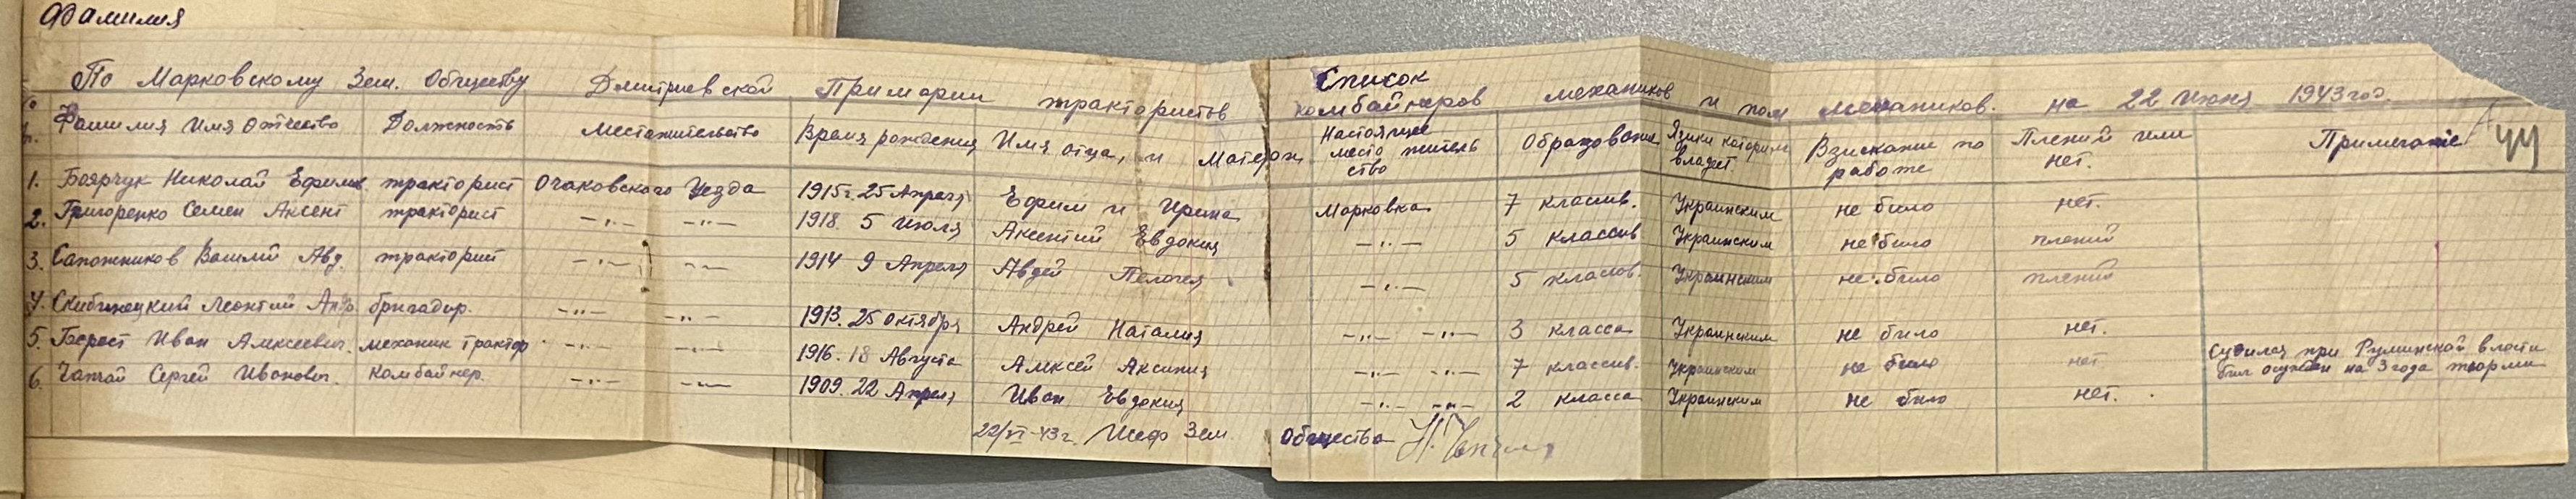 Фамилия
Список
По Марковскому Зем. Обществу Дмитриевской Примарии трактористов комбайнеров механиков и пом механиков. на 22 Июня 1943 год.
Фамилия Имя Отчество Должность Местожительство Время рождения Имя отца, и Матери Настоящее место жительство Образование Языки которым владет. Взискание по работе Плений или нет. Примечание 44
1. Боярчук Николай Ефимов. тракторист Очаковского Уезда 1915г. 25 Апреля Ефим и Ирина Марковка 7 классив. Украинским не било нет.
2. Григоренко Семен Аксент тракторист —„— —„— 1918. 5 Июля Аксентий Евдокия —„— 5 классив Украинским не било плений
3. Сапожников Василий Авд. тракторист —„— —„— 1914 9 Апреля Авдей Пелагея —„— 5 класов. Украинским не било плений
4. Скибинецкий Леонтий Андр. бригадир. —„— —„— 1913. 25 Октября Андрей Наталия —„— —„— 3 класса Украинским не било нет.
5. Берест Иван Алексеевич. механик трактор —„— —„— 1916. 18 Августа Алексей Аксиния —„— —„— 7 классив. Украинским не било нет Судился при Руминской власти бил осужден на 3 года тюрми
6. Чапчай Сергей Иванович. Комбайнер. —„— —„— 1909. 22 Апреля Иван Евдокия —„— —„— 2 класса Украинским не било нет.
22/VI-43г. Шеф Зем. Общества